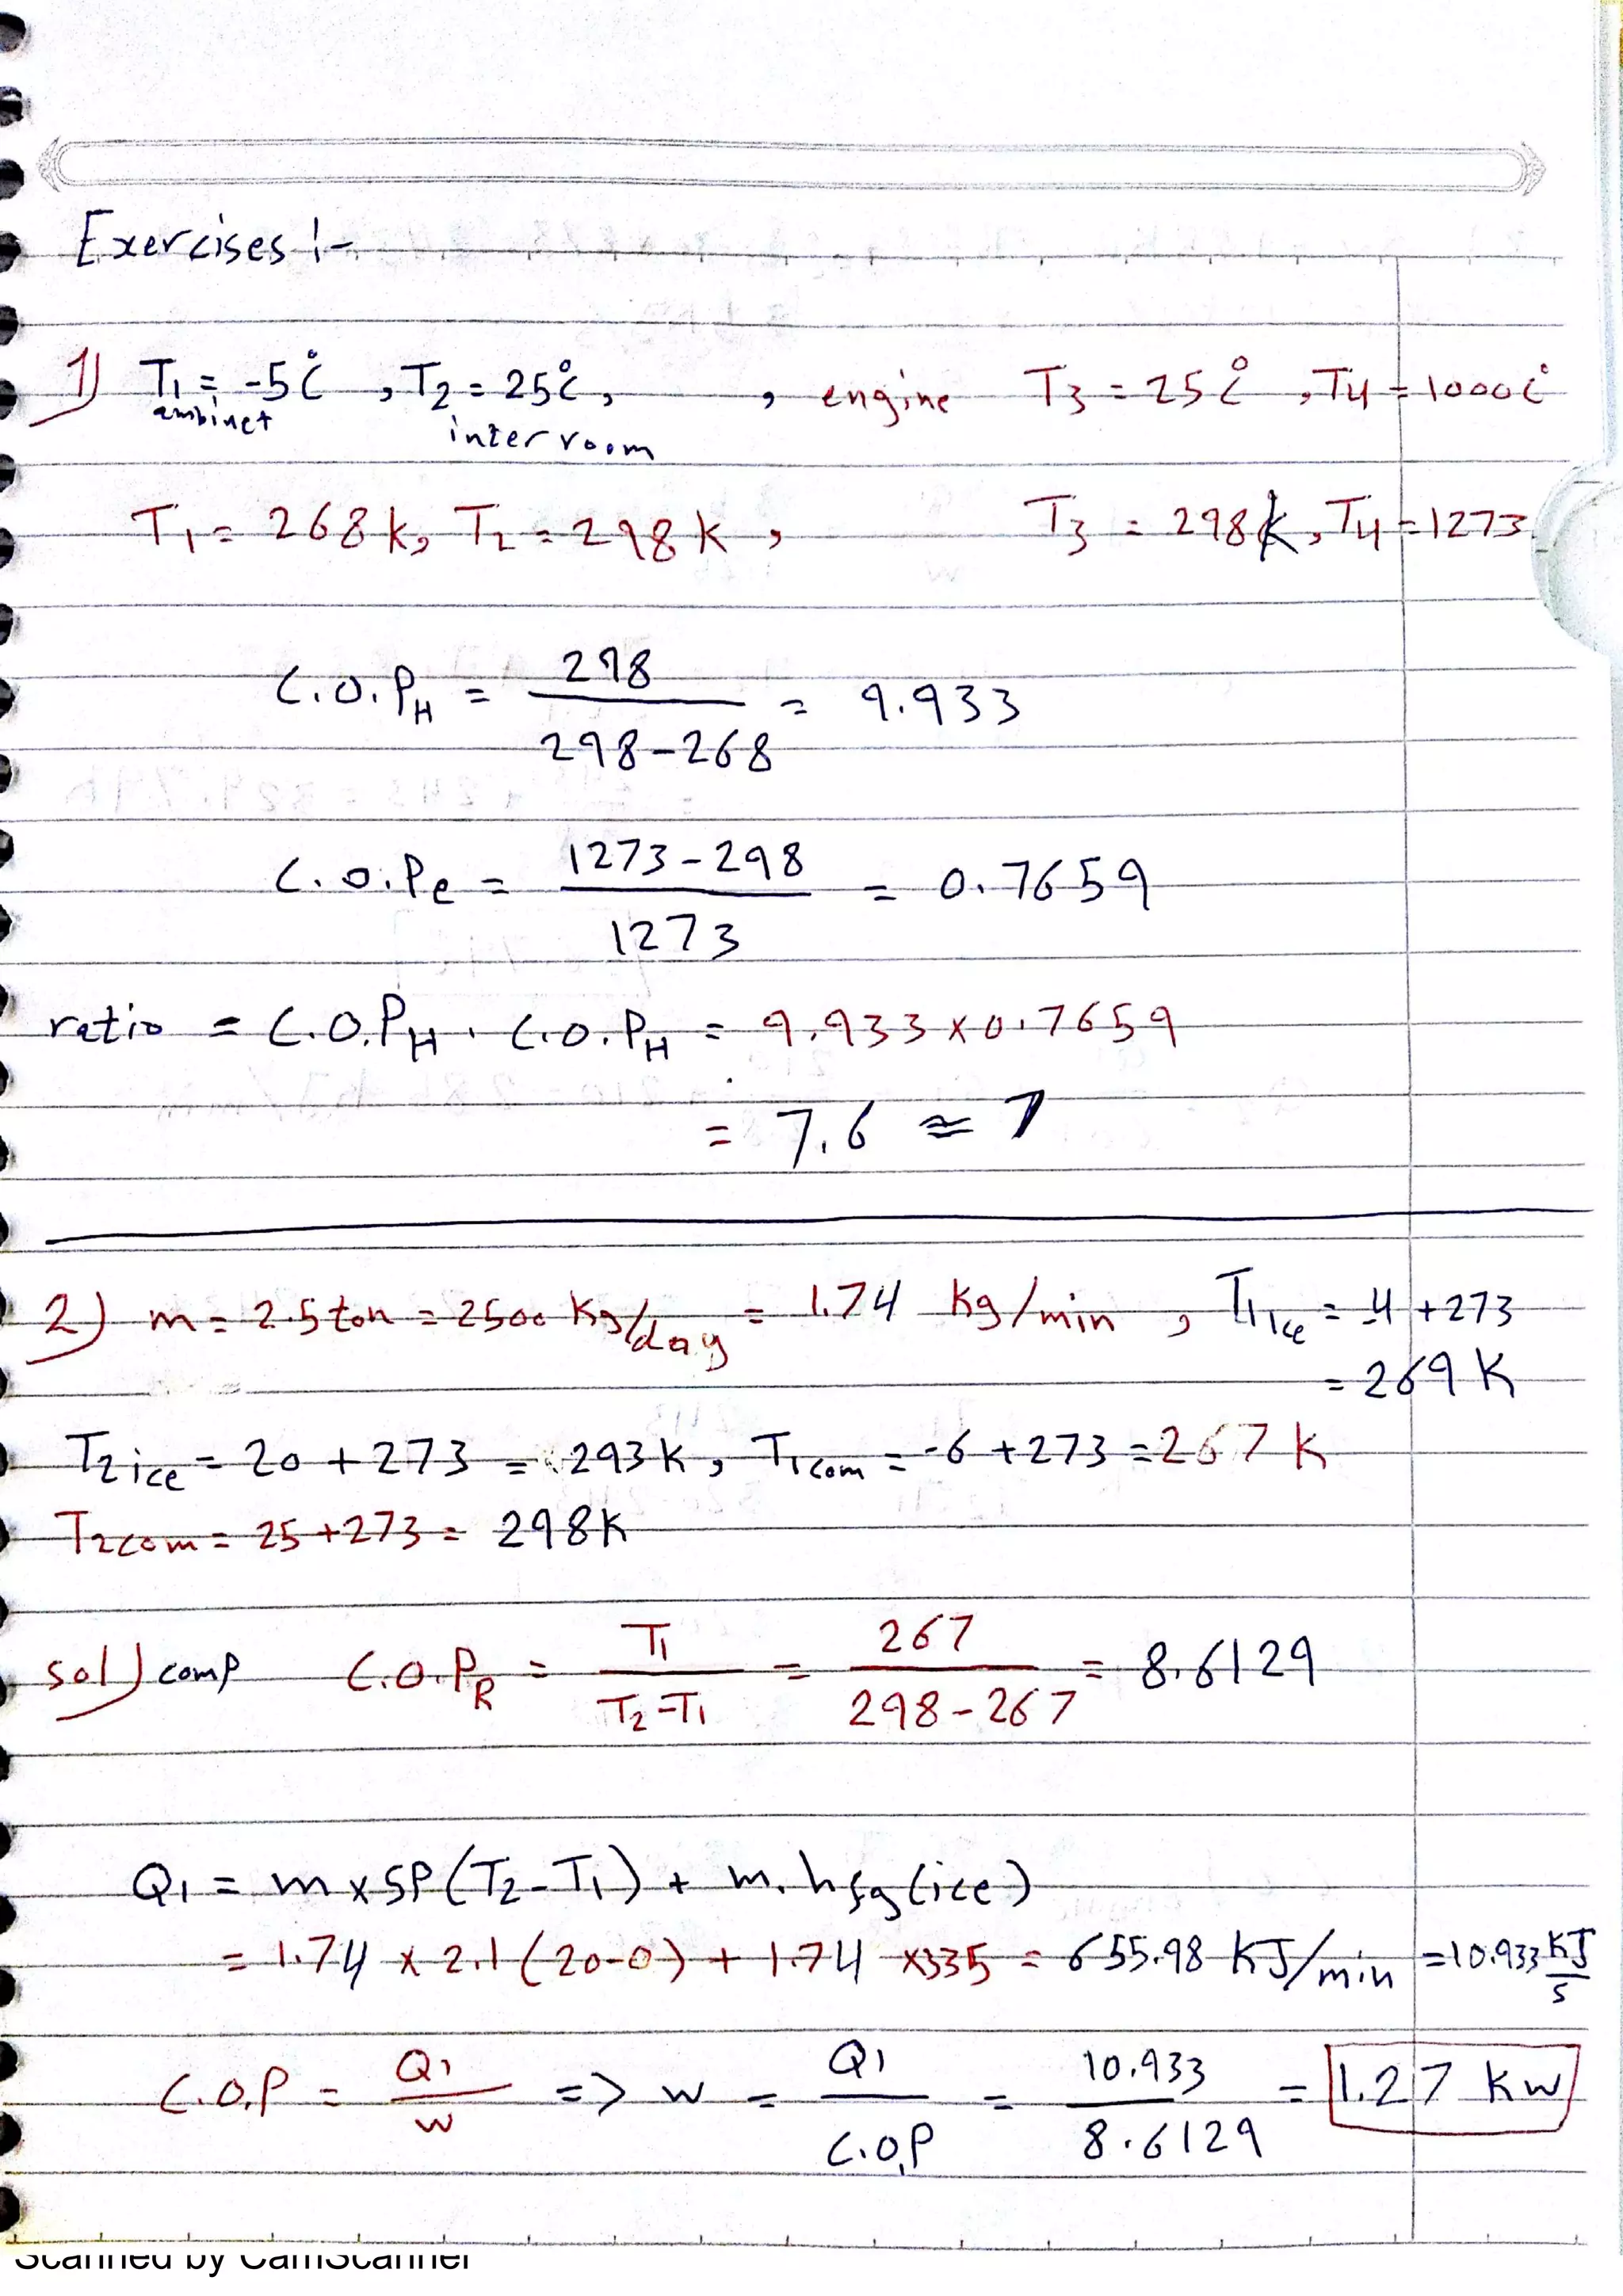 Exercises :-
1) T1 = -5 C° , T2 = 25 C° , , engine T3 = 25 C° , T4 = 1000 C°
ambinet inter room
T1 = 268 K, T2 = 298 K , T3 = 298 K, T4 = 1273
C.O.PH = 298 / (298-268) = 9.933
C.O.Pe = (1273-298) / 1273 = 0.7659
ratio = C.O.PH . C.O.PH = 9.933 x 0.7659
= 7.6 ≈ 7
2) m = 2.5 ton = 2500 Kg/day = 1.74 Kg/min , T1 ice = -4 + 273
= 269 K
T2 ice = 20 + 273 = 293 K , T1 com = -6 + 273 = 267 K
T2 com = 25 + 273 = 298 K
sol) comp C.O.PR = T1 / (T2-T1) = 267 / (298-267) = 8.6129
Q1 = m x SP (T2-T1) + m. hfg (ice)
= 1.74 x 2.1 (20-0) + 1.74 x 335 = 655.98 KJ/min = 10.933 KJ/s
C.O.P = Q1 / w => w = Q1 / C.O.P = 10.933 / 8.6129 = 1.27 Kw
Scanned by CamScanner